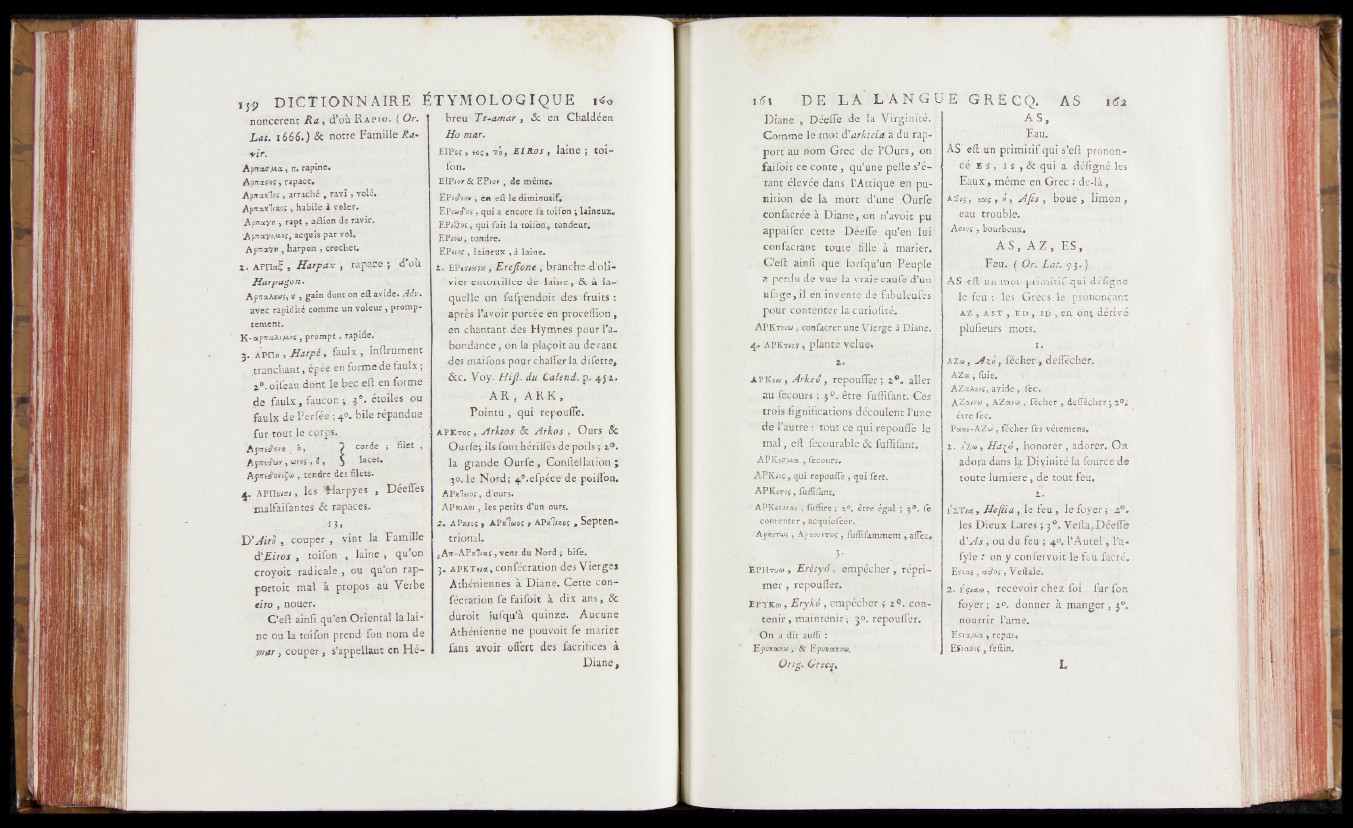 159 DICTIONNAIRE ÉTYMOLOGIQUE 160
noncerent Ra, d'où RAPIO. ( Or.
Lat. 1666.) & notre Famille Ra-
vir.
Αρπασμα, n. rapine.
Αρπαγος, rapace.
Αρπακτος, arraché, ravi, volé.
Αρπακτικος, habile à voler.
Αρπαγη, rapt, action de ravir.
Αρπαγιμος, acquis par vol.
Αρπαγη, harpon, crochet.
2. ΑΡΠαξ, Harpax, rapace ; d'où
Harpagon.
Αρπαλεως, gain dont on est avide. Adv.
avec rapidité comme un voleur, promp-
tement.
Κ-αρπαλιμος, prompt, rapide.
3. ΑΡΠη, Harpé, faulx, instrument
tranchant, épée en forme de faulx ;
2°. oiseau dont le bec est en forme
de faulx, faucon ; 3°. étoiles ou
faulx de Persée ; 4°. bile répandue
sur tout le corps.
Αρπεδονη, ἡ, } corde ; filet,
Αρπεδων, ονος, ἡ, } lacet.
Αρπεδονιζω, tendre des filets.
4. ΑΡΠυιαι, les Harpyes, Déesses
malfaisantes & rapaces.
13,
D'Airô, couper, vint la Famille
d'Eiros, toison, laine, qu'on
croyoit radicale, ou qu'on rap-
portoit mal à propos au Verbe
eiro, nouer.
C'est ainsi qu'en Oriental la lai-
ne ou la toison prend son nom de
mar, couper, s'appellant en Hé-
breu Ts-amar, & en Chaldéen
Ho mar.
ΕΙΡος, εος, τὸ, EIRos, laine ; toi-
son.
ΕΙΡιον & ΕΡιον, de même.
ΕΡιδιον, en est le diminutif.
ΕΡιωδης, qui a encore sa toison ; laineux.
ΕΡιθος, qui fait la toison, tondeur.
ΕΡιοω, tondre.
ΕΡεος, laineux, à laine.
2. ΕΡεσιωνη, Eresione, branche d'oli-
vier entortillée de laine, & à la-
quelle on suspendoit des fruits :
après l'avoir portée en procession,
en chantant des Hymnes pour l'a-
bondance, on la plaçoit au devant
des maisons pour chasser la disette,
&c. Voy. Hist. du Calend. p. 452.
AR, ARK,
Pointu, qui repousse.
ΑΡΚτος, Arktos & Arkos, Ours &
Ourse; ils sont hérissés de poils ; 2°.
la grande Ourse, Constellation ;
3°. le Nord ; 4°. espéce de poisson.
ΑΡΚτειος, d'ours.
ΑΡΚιλοι, les petits d'un ours.
2. ΑΡΚιος, ΑΡΚτωος, ΑΡΚτικος, Septen-
trional.
Απ-ΑΡΚτιας, vent du Nord ; bise.
3. ΑΡΚΤεια, consécration des Vierges
Athéniennes à Diane. Cette con-
sécration se faisoit à dix ans, &
duroit jusqu'à quinze. Aucune
Athénienne ne pouvoit se marier
sans avoir offert des sacrifices à
Diane,
161 DE LA LANGUE GRECQ. AS 162
Diane, Déesse de la Virginité.
Comme le mot d'arkteia a du rap-
port au nom Grec de l'Ours, on
faisoit ce conte, qu'une peste s'é-
tant élevée dans l'Attique en pu-
nition de la mort d'une Ourse
consacrée à Diane, on n'avoit pu
appaiser cette Déesse qu'en lui
consacrant toute fille à marier.
C'est ainsi que lorsqu'un Peuple
a perdu de vue la vraie cause d'un
usage, il en invente de fabuleuses
pour contenter la curiosité.
ΑΡΚτευω, consacrer une Vierge à Diane.
4. ΑΡΚτιον, plante velue.
2.
ΑΡΚεω, Arkeô, repousser ; 2°. aller
au secours ; 3°. être suffisant. Ces
trois significations découlent l'une
de l'autre : tout ce qui repousse le
mal, est secourable & suffisant.
ΑΡΚεσμα, secours.
ΑΡΚιος, qui repousse, qui sert.
ΑΡΚετος, suffisant.
ΑΡΚεομαι, suffire ; 2°. être égal ; 3°. se
contenter, acquiescer.
Αρκετως, Αρκουντως, suffisamment, assez.
3.
ΕΡΗτυω, Erétyô, empêcher, répri-
mer, repousser.
ΕΡΥΚω, Erykô, empêcher ; 2°. con-
tenir, maintenir ; 3°. repousser.
On a dit aussi :
Ερυκακω, & Ερυκακεω.
Orig. Grecq.
AS,
Eau.
AS est un primitif qui s'est pronon-
cé ES, IS, & qui a désigné les
Eaux, même en Grec : de-là,
ΑΣις, εως, ὁ, Asis, boue, limon,
eau trouble.
Ασιος, bourbeux.
AS, AZ, ES,
Feu. ( Or. Lat. 93. )
AS est un mot primitif qui désigne
le feu : les Grecs le prononçant
AZ, AST, ED, ID, en ont dérivé
plusieurs mots.
1.
ΑΖω, Azô, sécher, dessécher.
ΑΖα, suie.
ΑΖαλεος, aride, sec.
ΑΖαινω, ΑΖαιω, sécher, dessécher ; 2°.
être sec.
Ρακε-ΑΖω, sécher ses vêtemens.
2. ἁΖω, Hazô, honorer, adorer. On
adora dans la Divinité la source de
toute lumiere, de tout feu.
2.
ἑΣΤια, Hestia, le feu, le foyer ; 2°.
les Dieux Lares ; 3°. Vesta, Déesse
d'As, ou du feu ; 4°. l'Autel, l'a-
syle : on y conservoit le feu sacré.
Εστιας, αδος, Vestale.
2. ἑστιαω, recevoir chez soi, sur son
foyer ; 2°. donner à manger, 3°.
nourrir l'ame.
Εστιαμα, repas.
Εστιασις, festin.
L